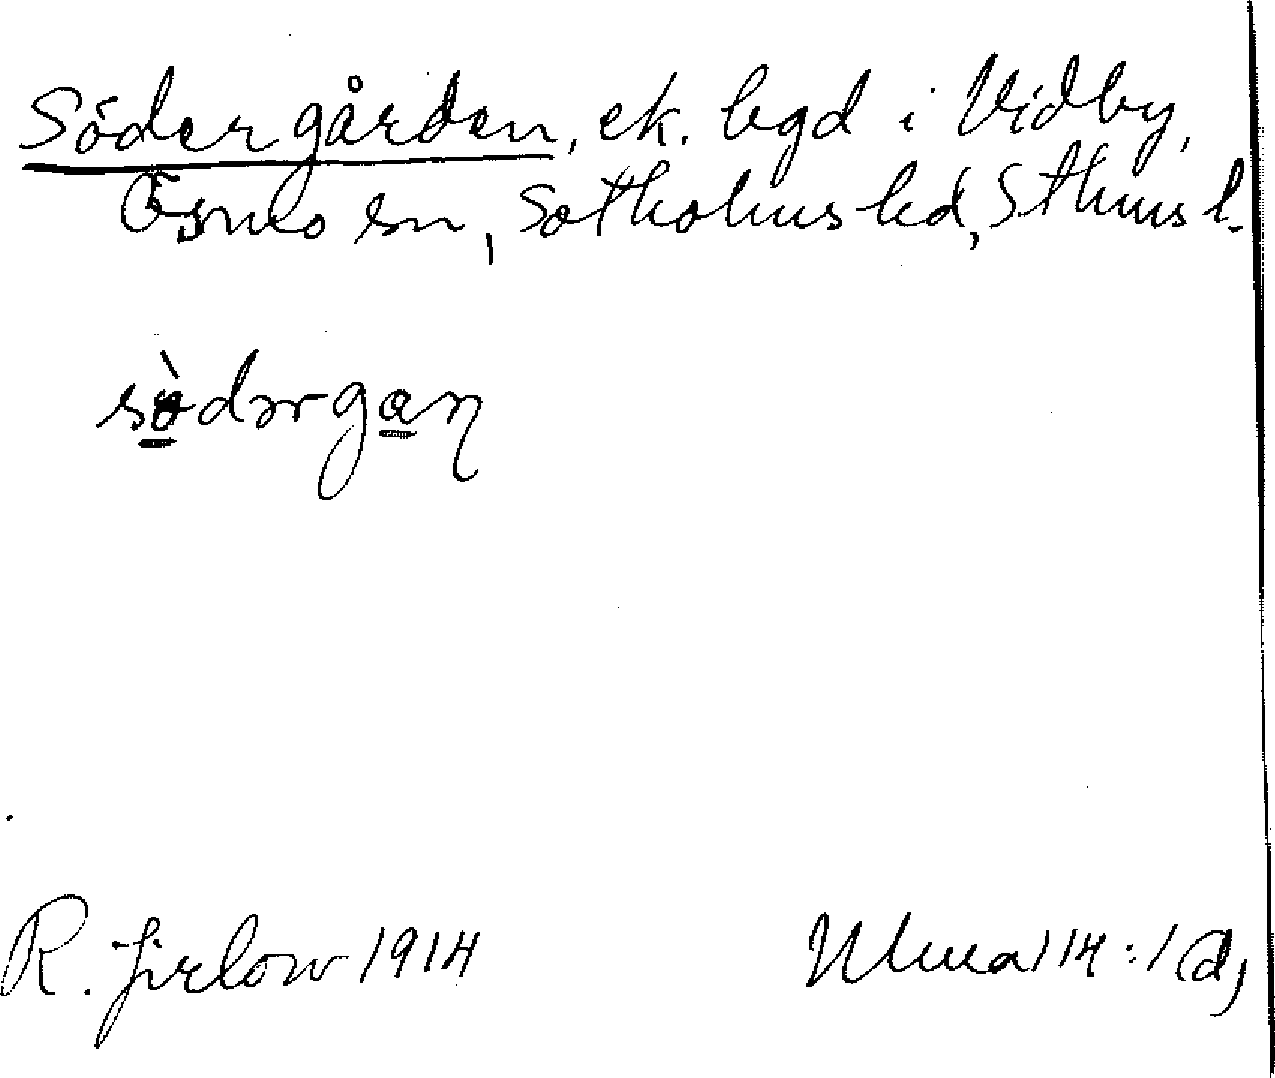 Södergården, ek. bgd i Vidby,
Ösmo sn, Sotholms hd, Sthms l.
sö̀dərgaɳ
R. Jirlow 1914
Ulma 114:1(d)